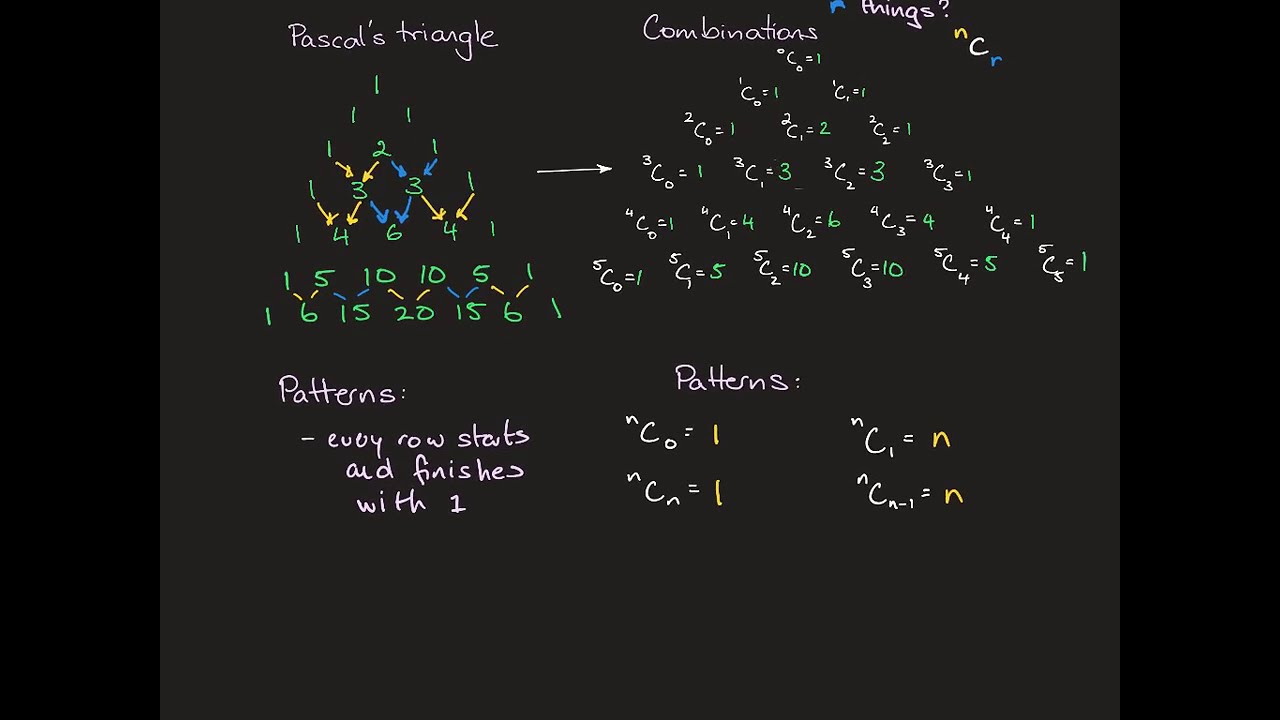 r things?
ⁿCᵣ
Pascal's triangle
1
1 1
1 2 1
1 3 3 1
1 4 6 4 1
1 5 10 10 5 1
1 6 15 20 15 6 1
Combinations
⁰C₀=1
¹C₀=1 ¹C₁=1
²C₀=1 ²C₁=2 ²C₂=1
³C₀=1 ³C₁=3 ³C₂=3 ³C₃=1
⁴C₀=1 ⁴C₁=4 ⁴C₂=6 ⁴C₃=4 ⁴C₄=1
⁵C₀=1 ⁵C₁=5 ⁵C₂=10 ⁵C₃=10 ⁵C₄=5 ⁵C₅=1
Patterns:
- every row starts
and finishes
with 1
Patterns:
ⁿC₀=1 ⁿC₁=n
ⁿCₙ=1 ⁿCₙ₋₁=n